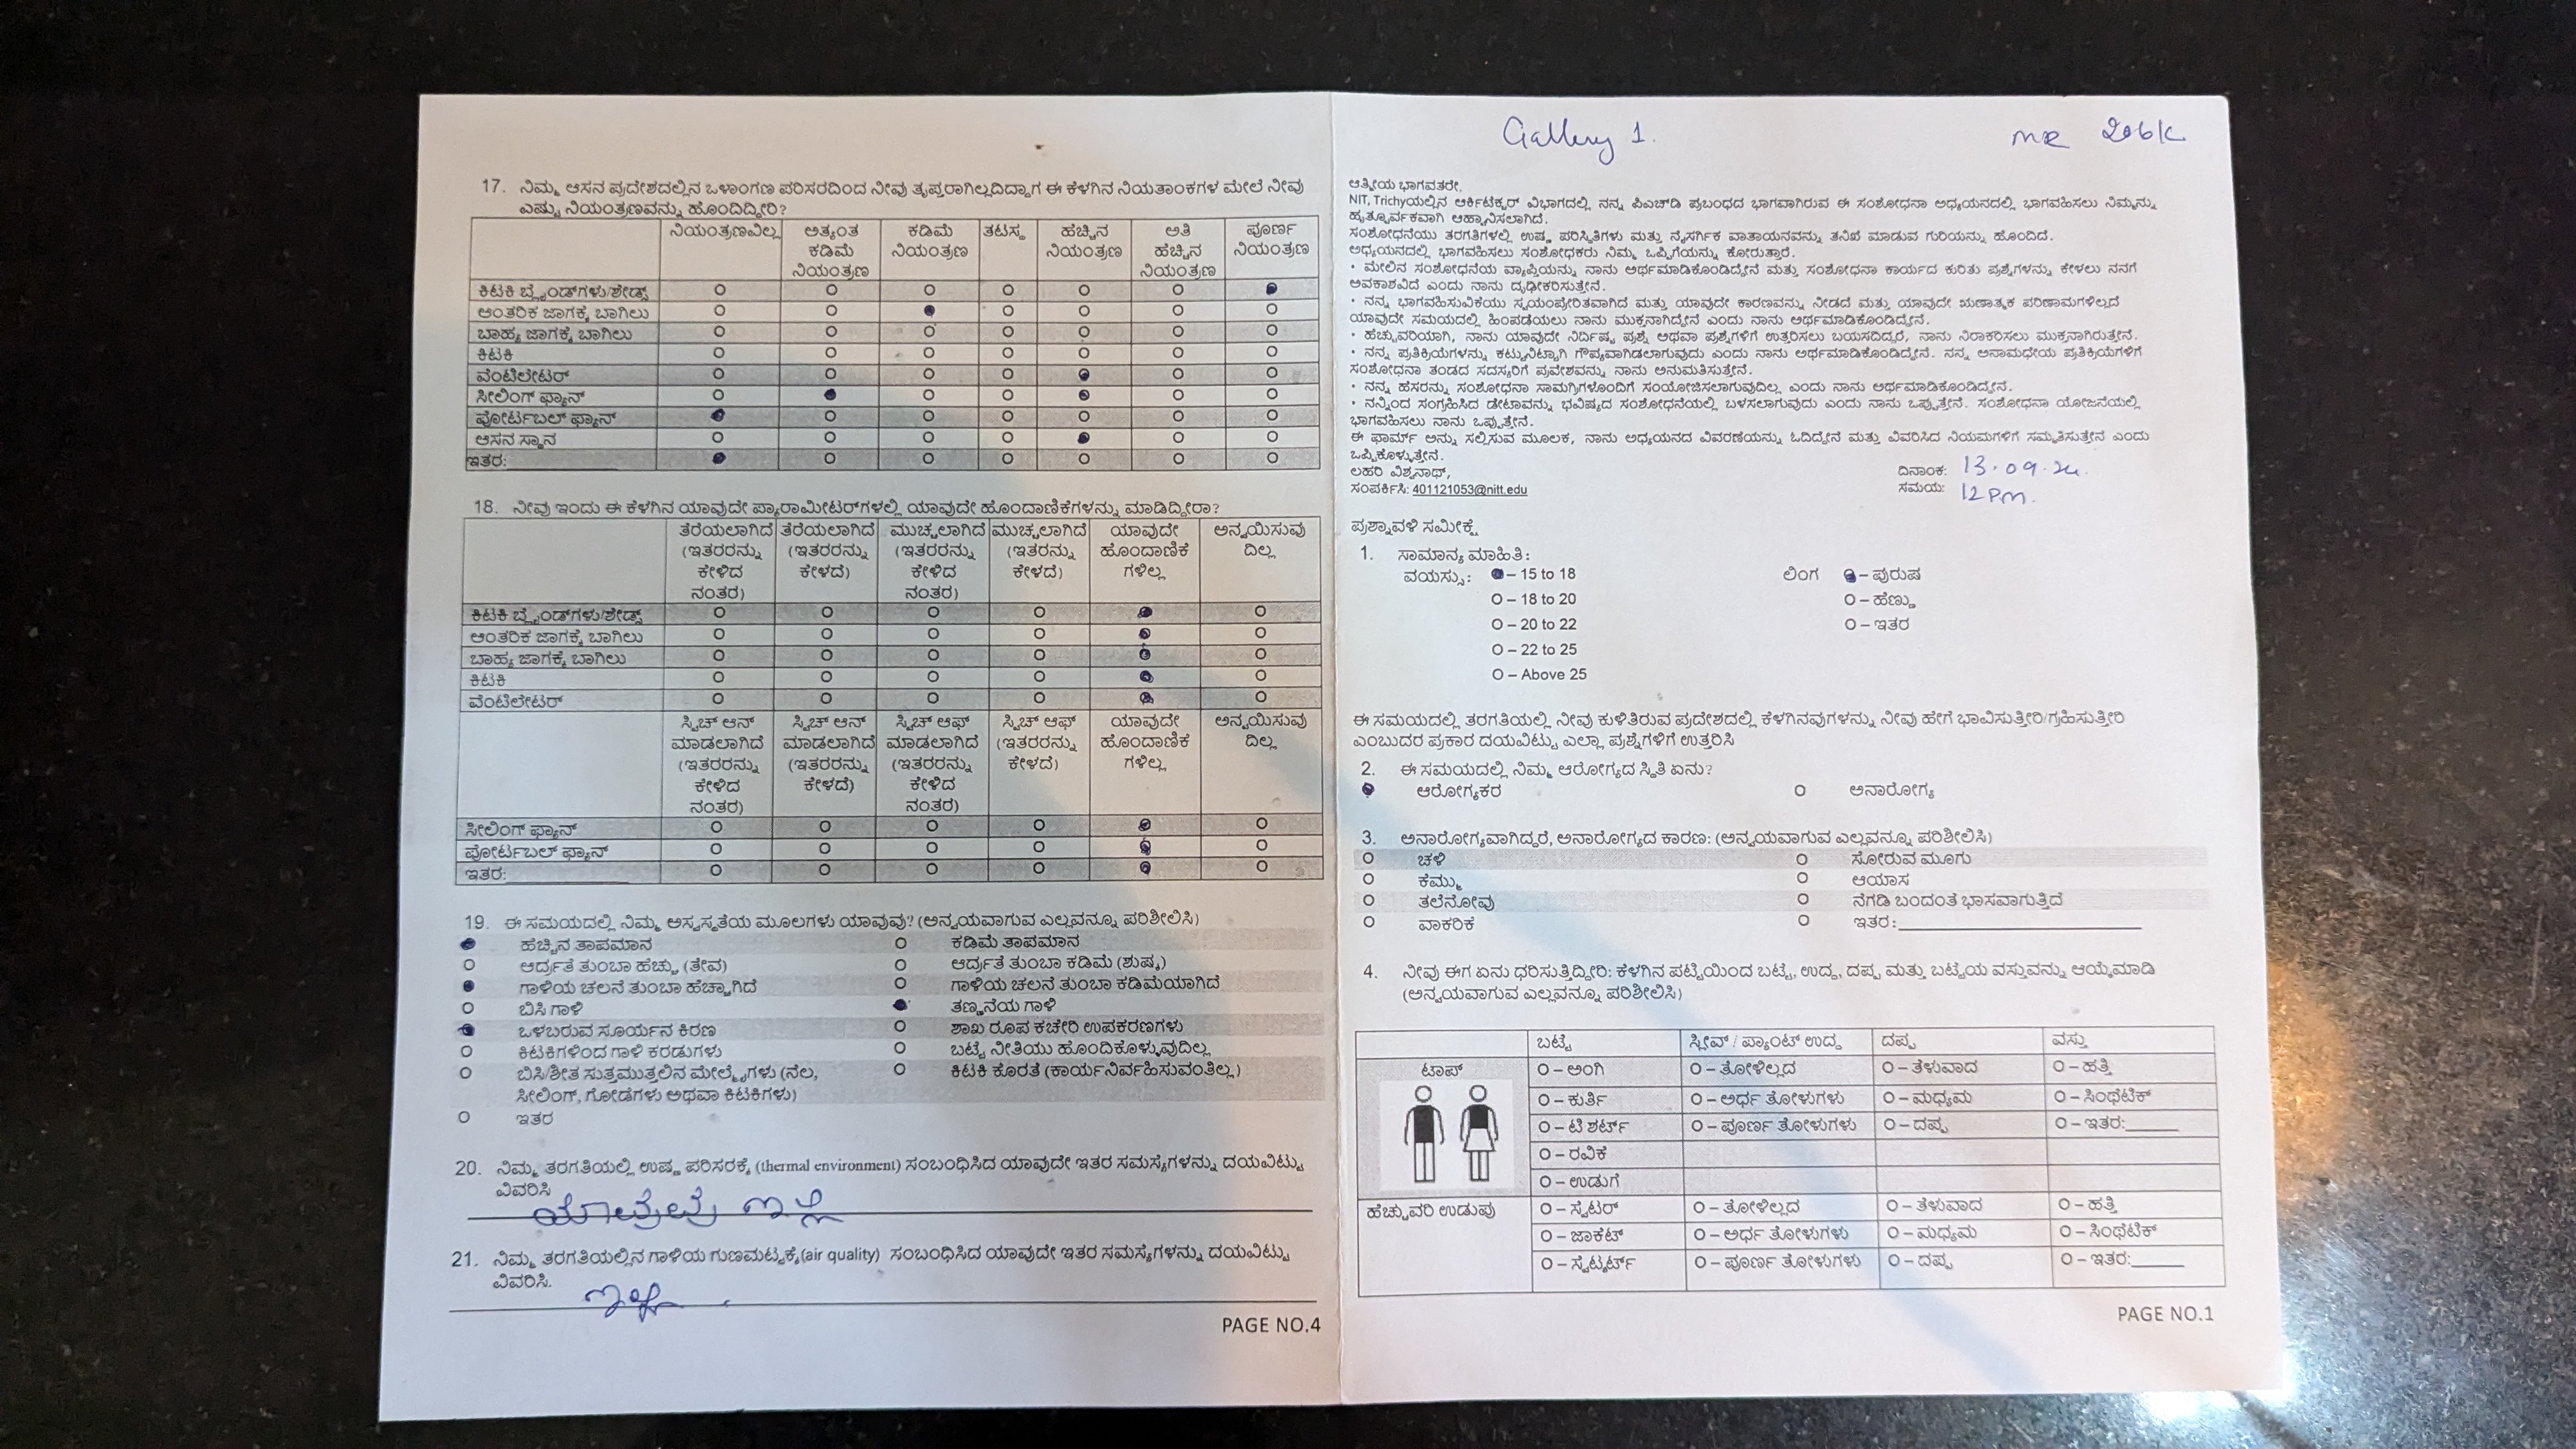 17. ನಿಮ್ಮ ಆಸನ ಪ್ರದೇಶದಲ್ಲಿನ ಒಳಾಂಗಣ ಪರಿಸರದಿಂದ ನೀವು ತೃಪ್ತರಾಗಿಲ್ಲದಿದ್ದಾಗ ಈ ಕೆಳಗಿನ ನಿಯತಾಂಕಗಳ ಮೇಲೆ ನೀವು
ಎಷ್ಟು ನಿಯಂತ್ರಣವನ್ನು ಹೊಂದಿದ್ದೀರಿ?
ನಿಯಂತ್ರಣವಿಲ್ಲ ಅತ್ಯಂತ ಕಡಿಮೆ ನಿಯಂತ್ರಣ ಕಡಿಮೆ ನಿಯಂತ್ರಣ ತಟಸ್ಥ ಹೆಚ್ಚಿನ ನಿಯಂತ್ರಣ ಅತಿ ಹೆಚ್ಚಿನ ನಿಯಂತ್ರಣ ಪೂರ್ಣ ನಿಯಂತ್ರಣ
ಕಿಟಕಿ ಬ್ಲೈಂಡ್‌ಗಳು/ಶೇಡ್ಸ್
ಆಂತರಿಕ ಜಾಗಕ್ಕೆ ಬಾಗಿಲು
ಬಾಹ್ಯ ಜಾಗಕ್ಕೆ ಬಾಗಿಲು
ಕಿಟಕಿ
ವೆಂಟಿಲೇಟರ್
ಸೀಲಿಂಗ್ ಫ್ಯಾನ್
ಪೋರ್ಟಬಲ್ ಫ್ಯಾನ್
ಆಸನ ಸ್ಥಾನ
ಇತರ:
18. ನೀವು ಇಂದು ಈ ಕೆಳಗಿನ ಯಾವುದೇ ಪ್ಯಾರಾಮೀಟರ್‌ಗಳಲ್ಲಿ ಯಾವುದೇ ಹೊಂದಾಣಿಕೆಗಳನ್ನು ಮಾಡಿದ್ದೀರಾ?
ತೆರೆಯಲಾಗಿದೆ (ಇತರರನ್ನು ಕೇಳಿದ ನಂತರ) ತೆರೆಯಲಾಗಿದೆ (ಇತರರನ್ನು ಕೇಳದೆ) ಮುಚ್ಚಲಾಗಿದೆ (ಇತರರನ್ನು ಕೇಳಿದ ನಂತರ) ಮುಚ್ಚಲಾಗಿದೆ (ಇತರರನ್ನು ಕೇಳದೆ) ಯಾವುದೇ ಹೊಂದಾಣಿಕೆ ಗಳಿಲ್ಲ ಅನ್ವಯಿಸುವು ದಿಲ್ಲ
ಕಿಟಕಿ ಬ್ಲೈಂಡ್‌ಗಳು/ಶೇಡ್ಸ್
ಆಂತರಿಕ ಜಾಗಕ್ಕೆ ಬಾಗಿಲು
ಬಾಹ್ಯ ಜಾಗಕ್ಕೆ ಬಾಗಿಲು
ಕಿಟಕಿ
ವೆಂಟಿಲೇಟರ್
ಸ್ವಿಚ್ ಆನ್ ಮಾಡಲಾಗಿದೆ (ಇತರರನ್ನು ಕೇಳಿದ ನಂತರ) ಸ್ವಿಚ್ ಆನ್ ಮಾಡಲಾಗಿದೆ (ಇತರರನ್ನು ಕೇಳದೆ) ಸ್ವಿಚ್ ಆಫ್ ಮಾಡಲಾಗಿದೆ (ಇತರರನ್ನು ಕೇಳಿದ ನಂತರ) ಸ್ವಿಚ್ ಆಫ್ (ಇತರರನ್ನು ಕೇಳದೆ) ಯಾವುದೇ ಹೊಂದಾಣಿಕೆ ಗಳಿಲ್ಲ ಅನ್ವಯಿಸುವು ದಿಲ್ಲ
ಸೀಲಿಂಗ್ ಫ್ಯಾನ್
ಪೋರ್ಟಬಲ್ ಫ್ಯಾನ್
ಇತರ:
19. ಈ ಸಮಯದಲ್ಲಿ ನಿಮ್ಮ ಅಸ್ವಸ್ಥತೆಯ ಮೂಲಗಳು ಯಾವುವು? (ಅನ್ವಯವಾಗುವ ಎಲ್ಲವನ್ನೂ ಪರಿಶೀಲಿಸಿ)
ಹೆಚ್ಚಿನ ತಾಪಮಾನ ಕಡಿಮೆ ತಾಪಮಾನ
ಆರ್ದ್ರತೆ ತುಂಬಾ ಹೆಚ್ಚು (ತೇವ) ಆರ್ದ್ರತೆ ತುಂಬಾ ಕಡಿಮೆ (ಶುಷ್ಕ)
ಗಾಳಿಯ ಚಲನೆ ತುಂಬಾ ಹೆಚ್ಚಾಗಿದೆ ಗಾಳಿಯ ಚಲನೆ ತುಂಬಾ ಕಡಿಮೆಯಾಗಿದೆ
ಬಿಸಿ ಗಾಳಿ ತಣ್ಣನೆಯ ಗಾಳಿ
ಒಳಬರುವ ಸೂರ್ಯನ ಕಿರಣ ಶಾಖ ರೂಪ ಕಚೇರಿ ಉಪಕರಣಗಳು
ಕಿಟಕಿಗಳಿಂದ ಗಾಳಿ ಕರಡುಗಳು ಬಟ್ಟೆ ನೀತಿಯು ಹೊಂದಿಕೊಳ್ಳುವುದಿಲ್ಲ
ಬಿಸಿ/ಶೀತ ಸುತ್ತಮುತ್ತಲಿನ ಮೇಲ್ಮೈಗಳು (ನೆಲ, ಕಿಟಕಿ ಕೊರತೆ (ಕಾರ್ಯನಿರ್ವಹಿಸುವಂತಿಲ್ಲ)
ಸೀಲಿಂಗ್, ಗೋಡೆಗಳು ಅಥವಾ ಕಿಟಕಿಗಳು)
ಇತರ
20. ನಿಮ್ಮ ತರಗತಿಯಲ್ಲಿ ಉಷ್ಣ ಪರಿಸರಕ್ಕೆ (thermal environment) ಸಂಬಂಧಿಸಿದ ಯಾವುದೇ ಇತರ ಸಮಸ್ಯೆಗಳನ್ನು ದಯವಿಟ್ಟು
ವಿವರಿಸಿ
ಯಾವುದು ಇಲ್ಲ
21. ನಿಮ್ಮ ತರಗತಿಯಲ್ಲಿನ ಗಾಳಿಯ ಗುಣಮಟ್ಟಕ್ಕೆ(air quality) ಸಂಬಂಧಿಸಿದ ಯಾವುದೇ ಇತರ ಸಮಸ್ಯೆಗಳನ್ನು ದಯವಿಟ್ಟು
ವಿವರಿಸಿ.
ಇಲ್ಲ
PAGE NO.4
Gallery 1.
ಆತ್ಮೀಯ ಭಾಗವತರೇ,
NIT, Trichyಯಲ್ಲಿನ ಆರ್ಕಿಟೆಕ್ಚರ್ ವಿಭಾಗದಲ್ಲಿ ನನ್ನ ಪಿಎಚ್‌ಡಿ ಪ್ರಬಂಧದ ಭಾಗವಾಗಿರುವ ಈ ಸಂಶೋಧನಾ ಅಧ್ಯಯನದಲ್ಲಿ ಭಾಗವಹಿಸಲು ನಿಮ್ಮನ್ನು
ಹೃತ್ಪೂರ್ವಕವಾಗಿ ಆಹ್ವಾನಿಸಲಾಗಿದೆ.
ಸಂಶೋಧನೆಯು ತರಗತಿಗಳಲ್ಲಿ ಉಷ್ಣ ಪರಿಸ್ಥಿತಿಗಳು ಮತ್ತು ನೈಸರ್ಗಿಕ ವಾತಾಯನವನ್ನು ತನಿಖೆ ಮಾಡುವ ಗುರಿಯನ್ನು ಹೊಂದಿದೆ.
ಅಧ್ಯಯನದಲ್ಲಿ ಭಾಗವಹಿಸಲು ಸಂಶೋಧಕರು ನಿಮ್ಮ ಒಪ್ಪಿಗೆಯನ್ನು ಕೋರುತ್ತಾರೆ.
• ಮೇಲಿನ ಸಂಶೋಧನೆಯ ವ್ಯಾಪ್ತಿಯನ್ನು ನಾನು ಅರ್ಥಮಾಡಿಕೊಂಡಿದ್ದೇನೆ ಮತ್ತು ಸಂಶೋಧನಾ ಕಾರ್ಯದ ಕುರಿತು ಪ್ರಶ್ನೆಗಳನ್ನು ಕೇಳಲು ನನಗೆ
ಅವಕಾಶವಿದೆ ಎಂದು ನಾನು ದೃಢೀಕರಿಸುತ್ತೇನೆ.
• ನನ್ನ ಭಾಗವಹಿಸುವಿಕೆಯು ಸ್ವಯಂಪ್ರೇರಿತವಾಗಿದೆ ಮತ್ತು ಯಾವುದೇ ಕಾರಣವನ್ನು ನೀಡದೆ ಮತ್ತು ಯಾವುದೇ ಋಣಾತ್ಮಕ ಪರಿಣಾಮಗಳಿಲ್ಲದೆ
ಯಾವುದೇ ಸಮಯದಲ್ಲಿ ಹಿಂಪಡೆಯಲು ನಾನು ಮುಕ್ತನಾಗಿದ್ದೇನೆ ಎಂದು ನಾನು ಅರ್ಥಮಾಡಿಕೊಂಡಿದ್ದೇನೆ.
• ಹೆಚ್ಚುವರಿಯಾಗಿ, ನಾನು ಯಾವುದೇ ನಿರ್ದಿಷ್ಟ ಪ್ರಶ್ನೆ ಅಥವಾ ಪ್ರಶ್ನೆಗಳಿಗೆ ಉತ್ತರಿಸಲು ಬಯಸದಿದ್ದರೆ, ನಾನು ನಿರಾಕರಿಸಲು ಮುಕ್ತನಾಗಿರುತ್ತೇನೆ.
• ನನ್ನ ಪ್ರತಿಕ್ರಿಯೆಗಳನ್ನು ಕಟ್ಟುನಿಟ್ಟಾಗಿ ಗೌಪ್ಯವಾಗಿಡಲಾಗುವುದು ಎಂದು ನಾನು ಅರ್ಥಮಾಡಿಕೊಂಡಿದ್ದೇನೆ. ನನ್ನ ಅನಾಮಧೇಯ ಪ್ರತಿಕ್ರಿಯೆಗಳಿಗೆ
ಸಂಶೋಧನಾ ತಂಡದ ಸದಸ್ಯರಿಗೆ ಪ್ರವೇಶವನ್ನು ನಾನು ಅನುಮತಿಸುತ್ತೇನೆ.
• ನನ್ನ ಹೆಸರನ್ನು ಸಂಶೋಧನಾ ಸಾಮಗ್ರಿಗಳೊಂದಿಗೆ ಸಂಯೋಜಿಸಲಾಗುವುದಿಲ್ಲ ಎಂದು ನಾನು ಅರ್ಥಮಾಡಿಕೊಂಡಿದ್ದೇನೆ.
• ನನ್ನಿಂದ ಸಂಗ್ರಹಿಸಿದ ಡೇಟಾವನ್ನು ಭವಿಷ್ಯದ ಸಂಶೋಧನೆಯಲ್ಲಿ ಬಳಸಲಾಗುವುದು ಎಂದು ನಾನು ಒಪ್ಪುತ್ತೇನೆ. ಸಂಶೋಧನಾ ಯೋಜನೆಯಲ್ಲಿ
ಭಾಗವಹಿಸಲು ನಾನು ಒಪ್ಪುತ್ತೇನೆ.
ಈ ಫಾರ್ಮ್ ಅನ್ನು ಸಲ್ಲಿಸುವ ಮೂಲಕ, ನಾನು ಅಧ್ಯಯನದ ವಿವರಣೆಯನ್ನು ಓದಿದ್ದೇನೆ ಮತ್ತು ವಿವರಿಸಿದ ನಿಯಮಗಳಿಗೆ ಸಮ್ಮತಿಸುತ್ತೇನೆ ಎಂದು
ಒಪ್ಪಿಕೊಳ್ಳುತ್ತೇನೆ.
ಲಹರಿ ವಿಶ್ವನಾಥ್, ದಿನಾಂಕ: 13.09.24.
ಸಂಪರ್ಕಿಸಿ: 401121053@nitt.edu ಸಮಯ: 12 Pm.
ಪ್ರಶ್ನಾವಳಿ ಸಮೀಕ್ಷೆ
1. ಸಾಮಾನ್ಯ ಮಾಹಿತಿ:
ವಯಸ್ಸು: – 15 to 18 ಲಿಂಗ – ಪುರುಷ
O – 18 to 20 O – ಹೆಣ್ಣು
O – 20 to 22 O – ಇತರ
O – 22 to 25
O – Above 25
ಈ ಸಮಯದಲ್ಲಿ ತರಗತಿಯಲ್ಲಿ ನೀವು ಕುಳಿತಿರುವ ಪ್ರದೇಶದಲ್ಲಿ ಕೆಳಗಿನವುಗಳನ್ನು ನೀವು ಹೇಗೆ ಭಾವಿಸುತ್ತೀರಿ/ಗ್ರಹಿಸುತ್ತೀರಿ
ಎಂಬುದರ ಪ್ರಕಾರ ದಯವಿಟ್ಟು ಎಲ್ಲಾ ಪ್ರಶ್ನೆಗಳಿಗೆ ಉತ್ತರಿಸಿ
2. ಈ ಸಮಯದಲ್ಲಿ ನಿಮ್ಮ ಆರೋಗ್ಯದ ಸ್ಥಿತಿ ಏನು?
ಆರೋಗ್ಯಕರ ಅನಾರೋಗ್ಯ
3. ಅನಾರೋಗ್ಯವಾಗಿದ್ದರೆ, ಅನಾರೋಗ್ಯದ ಕಾರಣ: (ಅನ್ವಯವಾಗುವ ಎಲ್ಲವನ್ನೂ ಪರಿಶೀಲಿಸಿ)
ಚಳಿ ಸೋರುವ ಮೂಗು
ಕೆಮ್ಮು ಆಯಾಸ
ತಲೆನೋವು ನೆಗಡಿ ಬಂದಂತೆ ಭಾಸವಾಗುತ್ತಿದೆ
ವಾಕರಿಕೆ ಇತರ:
4. ನೀವು ಈಗ ಏನು ಧರಿಸುತ್ತಿದ್ದೀರಿ: ಕೆಳಗಿನ ಪಟ್ಟಿಯಿಂದ ಬಟ್ಟೆ, ಉದ್ದ, ದಪ್ಪ ಮತ್ತು ಬಟ್ಟೆಯ ವಸ್ತುವನ್ನು ಆಯ್ಕೆಮಾಡಿ
(ಅನ್ವಯವಾಗುವ ಎಲ್ಲವನ್ನೂ ಪರಿಶೀಲಿಸಿ)
ಬಟ್ಟೆ ಸ್ಲೀವ್ / ಪ್ಯಾಂಟ್ ಉದ್ದ ದಪ್ಪ ವಸ್ತು
ಟಾಪ್ O – ಅಂಗಿ O – ತೋಳಿಲ್ಲದ O – ತೆಳುವಾದ O – ಹತ್ತಿ
O – ಕುರ್ತಿ O – ಅರ್ಧ ತೋಳುಗಳು O – ಮಧ್ಯಮ O – ಸಿಂಥೆಟಿಕ್
O – ಟಿ ಶರ್ಟ್ O – ಪೂರ್ಣ ತೋಳುಗಳು O – ದಪ್ಪ O – ಇತರ:
O – ರವಿಕೆ
O – ಉಡುಗೆ
ಹೆಚ್ಚುವರಿ ಉಡುಪು O – ಸ್ವೆಟರ್ O – ತೋಳಿಲ್ಲದ O – ತೆಳುವಾದ O – ಹತ್ತಿ
O – ಜಾಕೆಟ್ O – ಅರ್ಧ ತೋಳುಗಳು O – ಮಧ್ಯಮ O – ಸಿಂಥೆಟಿಕ್
O – ಸ್ವೆಟ್ಶರ್ಟ್ O – ಪೂರ್ಣ ತೋಳುಗಳು O – ದಪ್ಪ O – ಇತರ:
PAGE NO.1